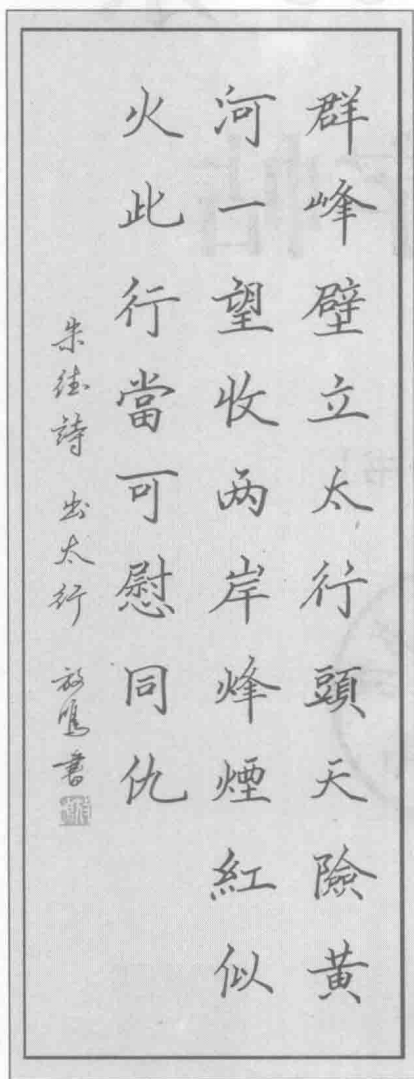 群峰壁立太行頭天險黄
河一望收两岸烽煙紅似
火此行當可慰同仇
朱德詩 出太行 放鳴書